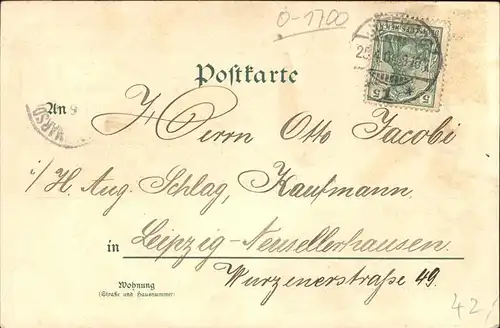 0-1700
25
Postkarte
5 5
An
MARSD
Herrn Otto Jacobi
i/H. Aug. Schlag, Kaufmann
in Leipzig-Neusellerhausen.
Wurzenerstraße 49.
Wohnung
(Straße und Hausnummer)
42,